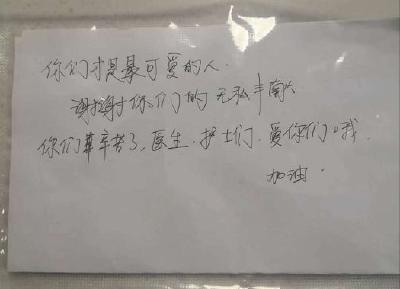 你们才是最可爱的人.
谢谢你们的无私丰献
你们辛苦了,医生,护士们,爱你们哦,
加油.